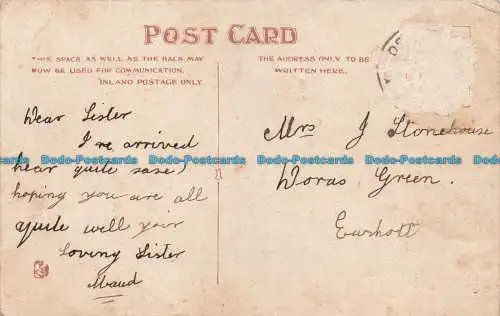 POST CARD
THIS SPACE AS WELL AS THE BACK, MAY
NOW BE USED FOR COMMUNICATION.
INLAND POSTAGE ONLY.
THE ADDRESS ONLY TO BE
WRITTEN HERE.
Dear Sister
I've arrived
hear quite safe
hoping you are all
quite well your
loving Sister
Maud
Mrs J Stonehouse
Green.
Dodo-Postcards Dodo-Postcards Dodo-Postcards Dodo-Postcards